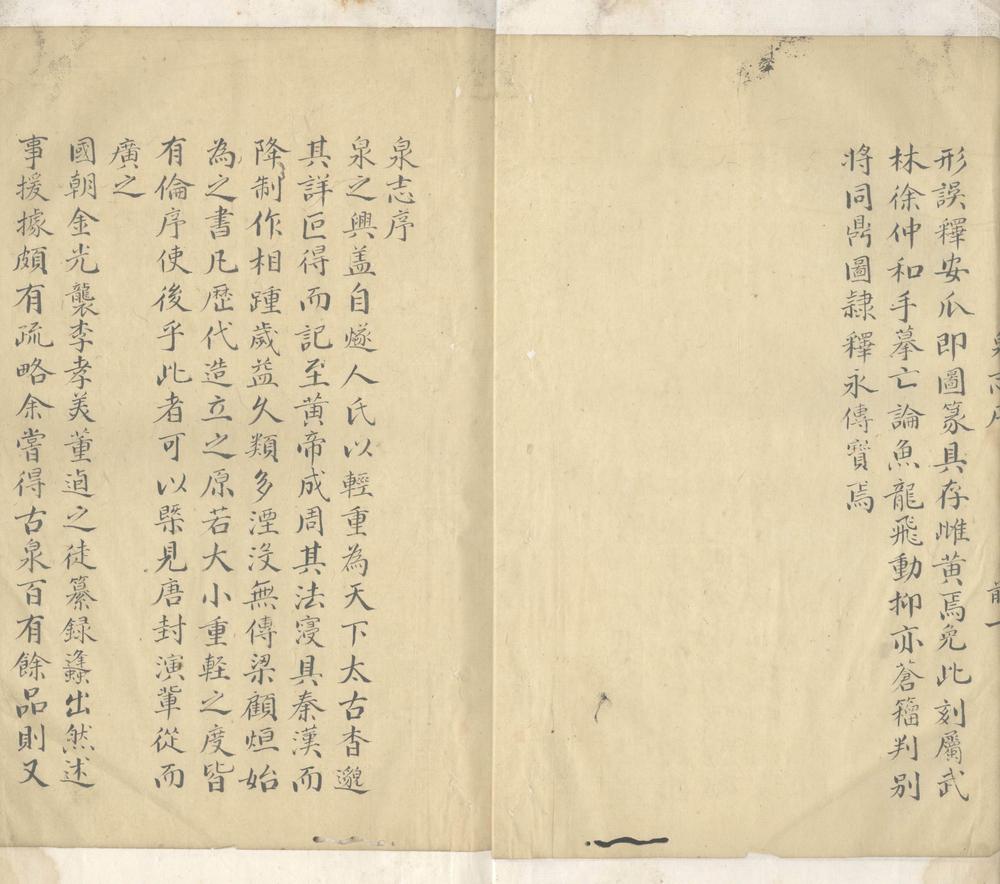 形誤釋安爪即圖篆具存雌黄焉免此刻屬武
林徐仲和手摹亡論魚龍飛動抑亦蒼籀判别
將同鼎圖隷釋永傳寶焉
泉志序
泉之興盖自燧人氏以輕重為天下太古杳邈
其詳叵得而記至黄帝成周其法寖具秦漢而
降制作相踵歲益久類多湮没無傳梁顧烜始
為之書凡歴代造立之原若大小重軽之度皆
有倫序使後乎此者可以槩見唐封演軰從而
廣之
國朝金光襲李孝美董逌之徒纂録蠭出然述
事援據頗有疏略余嘗得古泉百有餘品則又